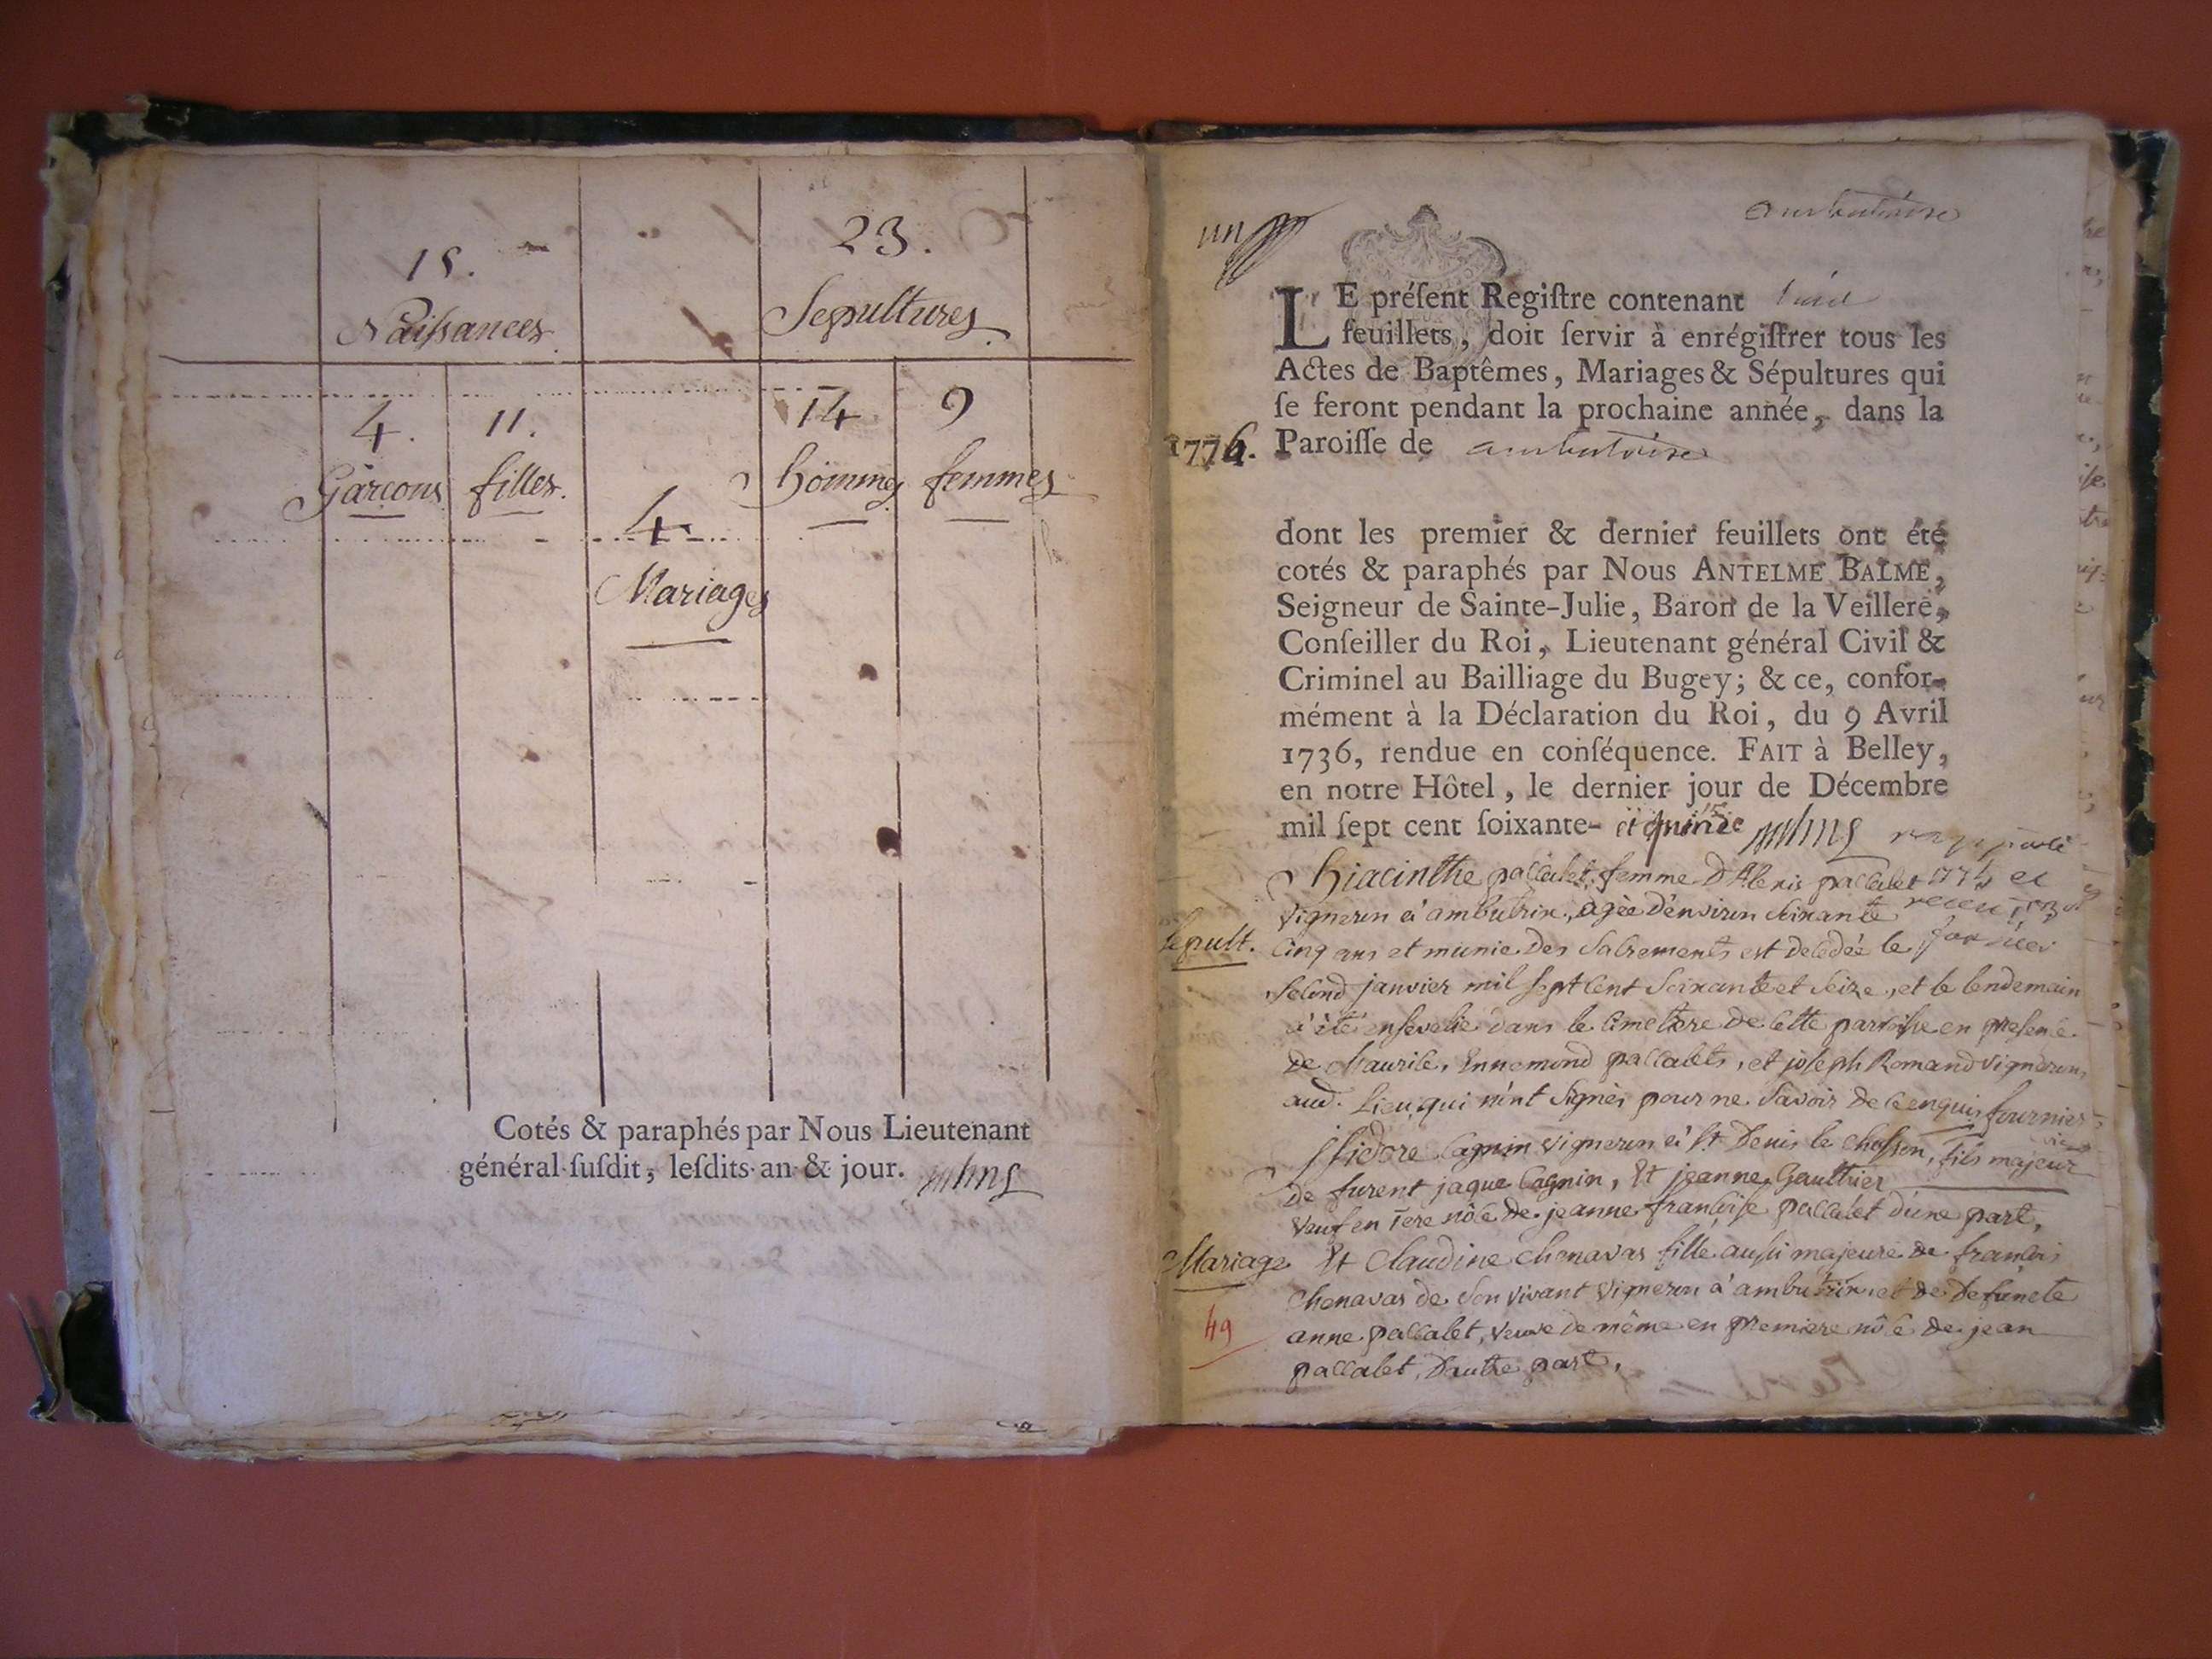 15.
Naissances
23.
Sepultures
4.
Garcons
11.
filles.
14
hommes
9
femmes
4
Mariages
Cotés & paraphés par Nous Lieutenant
général ſuſdit, leſdits an & jour.
un
LE préſent Regiſtre contenant
feuillets, doit ſervir à enrégiſtrer tous les
Actes de Baptêmes, Mariages & Sépultures qui
ſe feront pendant la prochaine année, dans la
1776. Paroiſſe de
dont les premier & dernier feuillets ont été
cotés & paraphés par Nous ANTELME BALME,
Seigneur de Sainte-Julie, Baron de la Veillere,
Conſeiller du Roi, Lieutenant général Civil &
Criminel au Bailliage du Bugey; & ce, confor-
mément à la Déclaration du Roi, du 9 Avril
1736, rendue en conſéquence. FAIT à Belley,
en notre Hôtel, le dernier jour de Décembre
mil ſept cent ſoixante- et quinze
hiacinthe paccalet, femme D'Alexis paccalet
vigneron à ambutrix, agée d'environ soixante
Sepult. cinq ans et munie des Sacrements est decedée le
second janvier mil sept cent soixante et seize, et le lendemain
a été ensevelie dans le cimetiere de cette parroisse en presence
de Maurice, Ennemond paccalets, et joseph Romand vignerons
aud. Lieu, qui n'ont signés pour ne savoir de ce enquis fournier
jsidore Cagnin vigneron à St Denis le chosson, fils majeur
de furent jaque Cagnin, Et jeanne Gauthier
veuf en 1ere nôce de jeanne francoise paccalet d'une part,
Mariage Et Claudine Chenavas fille aussi majeure de francois
Chenavas de son vivant vigneron à ambutrix et de Defuncte
49 anne paccalet, veuve de même en premiere nôce de jean
paccalet, D'autre part,